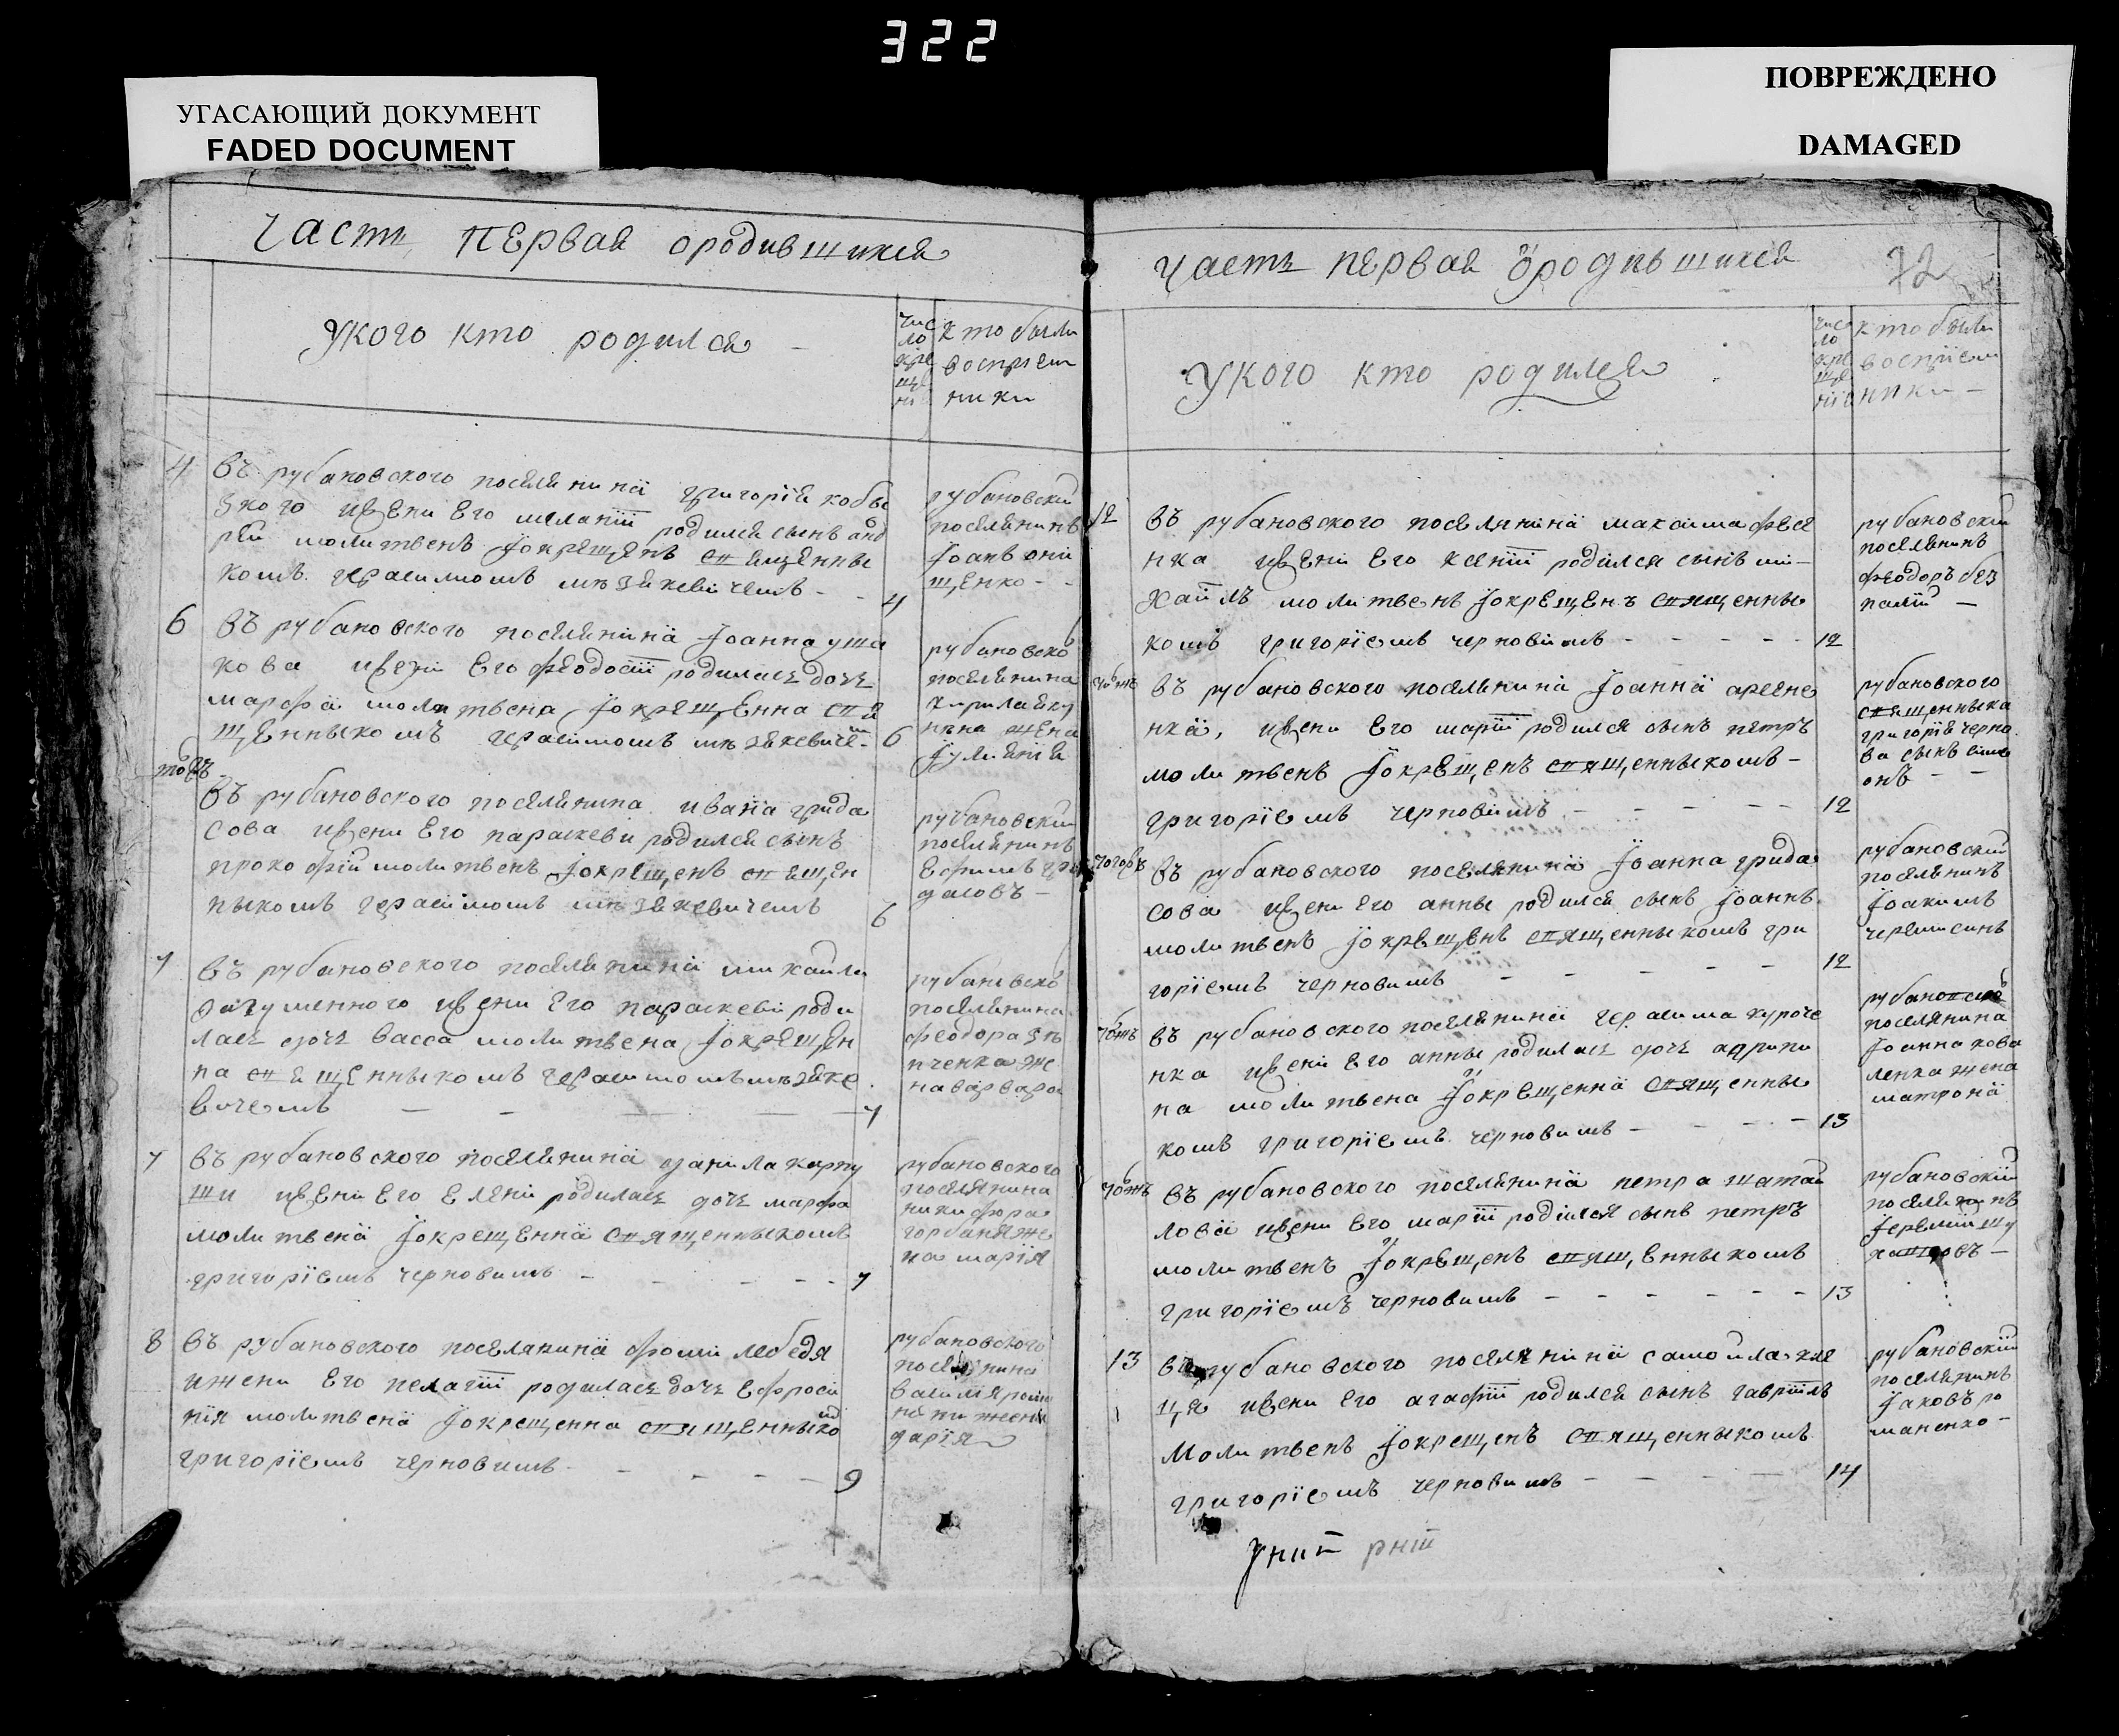 322
УГАСАЮЩИЙ ДОКУМЕНТ
FADED DOCUMENT
ПОВРЕЖДЕНО
DAMAGED
часть первая ородившихся
Укого кто родился
чис
ло
кре
ще
ні
кто были
воспріем
ники
4
въ рубановского поселянина григорія кобы
зкого ижени его меланіи родился сынъ анд
рей молитвенъ іокрещенъ священны
комъ герасимомъ мѣзякевичемъ
4
рубановскій
поселянинъ
Іоанъ они
щенко
6
въ рубановского поселянина Іоанна уша
кова ижени его феодосіи родилась дочь
марфа молитвена іокрещенна свя
щенныкомъ герасимомъ мѣзякевичемъ
6
рубановско
поселянина
кирила ку
жена
Іуліянія
тожъ
въ рубановского поселянина ивана грида
сова ижени его параскеви родился сынъ
прокофій молитвенъ іокрещенъ священ
ныкомъ герасимомъ мѣзякевичемъ
6
рубановскій
поселянинъ
Ефимъ
даовъ
7
въ рубановского поселянина михаила
ижени его параскеви роди
лась дочь васса молитвена іокрещен
на священныкомъ герасимомъ мѣзяке
вичемъ
7
рубановско
поселянина
феодора зѣ
нченка же
на варвара
7
въ рубановского поселянина данила карпу
ши ижени его елени родилась дочь марфа
молитвена іокрещенна священныкомъ
григоріемъ черновимъ
7
рубановского
поселянина
никифора
горбаня же
на марія
8
въ рубановского поселянина фоми лебедя
ижени его пелагіи родилась дочь ефроси
нія молитвена іокрещенна священныком
григоріемъ черновимъ
9
рубановского
поселянина
василія
жена
дарія
часть первая ородившихся
72
Укого кто родился
чис
ло
кре
ще
нія
кто были
воспріем
ники
12
въ рубановского поселянина максима фесе
нка ижени его ксеніи родился сынъ ми
хаилъ молитвенъ іокрещенъ священны
комъ григоріемъ черновимъ
12
рубановскій
поселянинъ
феодоръ без
палій
тожъ
въ рубановского поселянина Іоанна арсене
нка, ижени его маріи родился сынъ петръ
молитвенъ іокрещенъ священныкомъ
григоріемъ черновимъ
12
рубановского
священныка
григорія черно
ва сынъ симе
онъ
тогожъ
въ рубановского поселянина Іоанна грида
сова ижени его анны родился сынъ Іоаннъ
молитвенъ іокрещенъ священныкомъ гри
горіемъ черновимъ
12
рубановскій
поселянинъ
Іоакимъ
черемисинъ
тожъ
въ рубановского поселянина герасима куроче
нка ижени его анны родилась дочь акрипи
на молитвена іокрещенна священны
комъ григоріемъ черновимъ
13
рубановско
поселянина
Іоанна кова
ленка жена
матрона
тожъ
въ рубановского поселянина петра шатай
лова ижени его маріи родился сынъ петръ
молитвенъ іокрещенъ священныкомъ
григоріемъ черновимъ
13
рубановскій
поселянинъ
Іеремій шу
13
въ рубановского поселянина самойла кле
ця ижени его агафіи родился сынъ гавріилъ
молитвенъ іокрещенъ священныкомъ
григоріемъ черновимъ
14
рубановскій
поселянинъ
Іаковъ ро
маненко